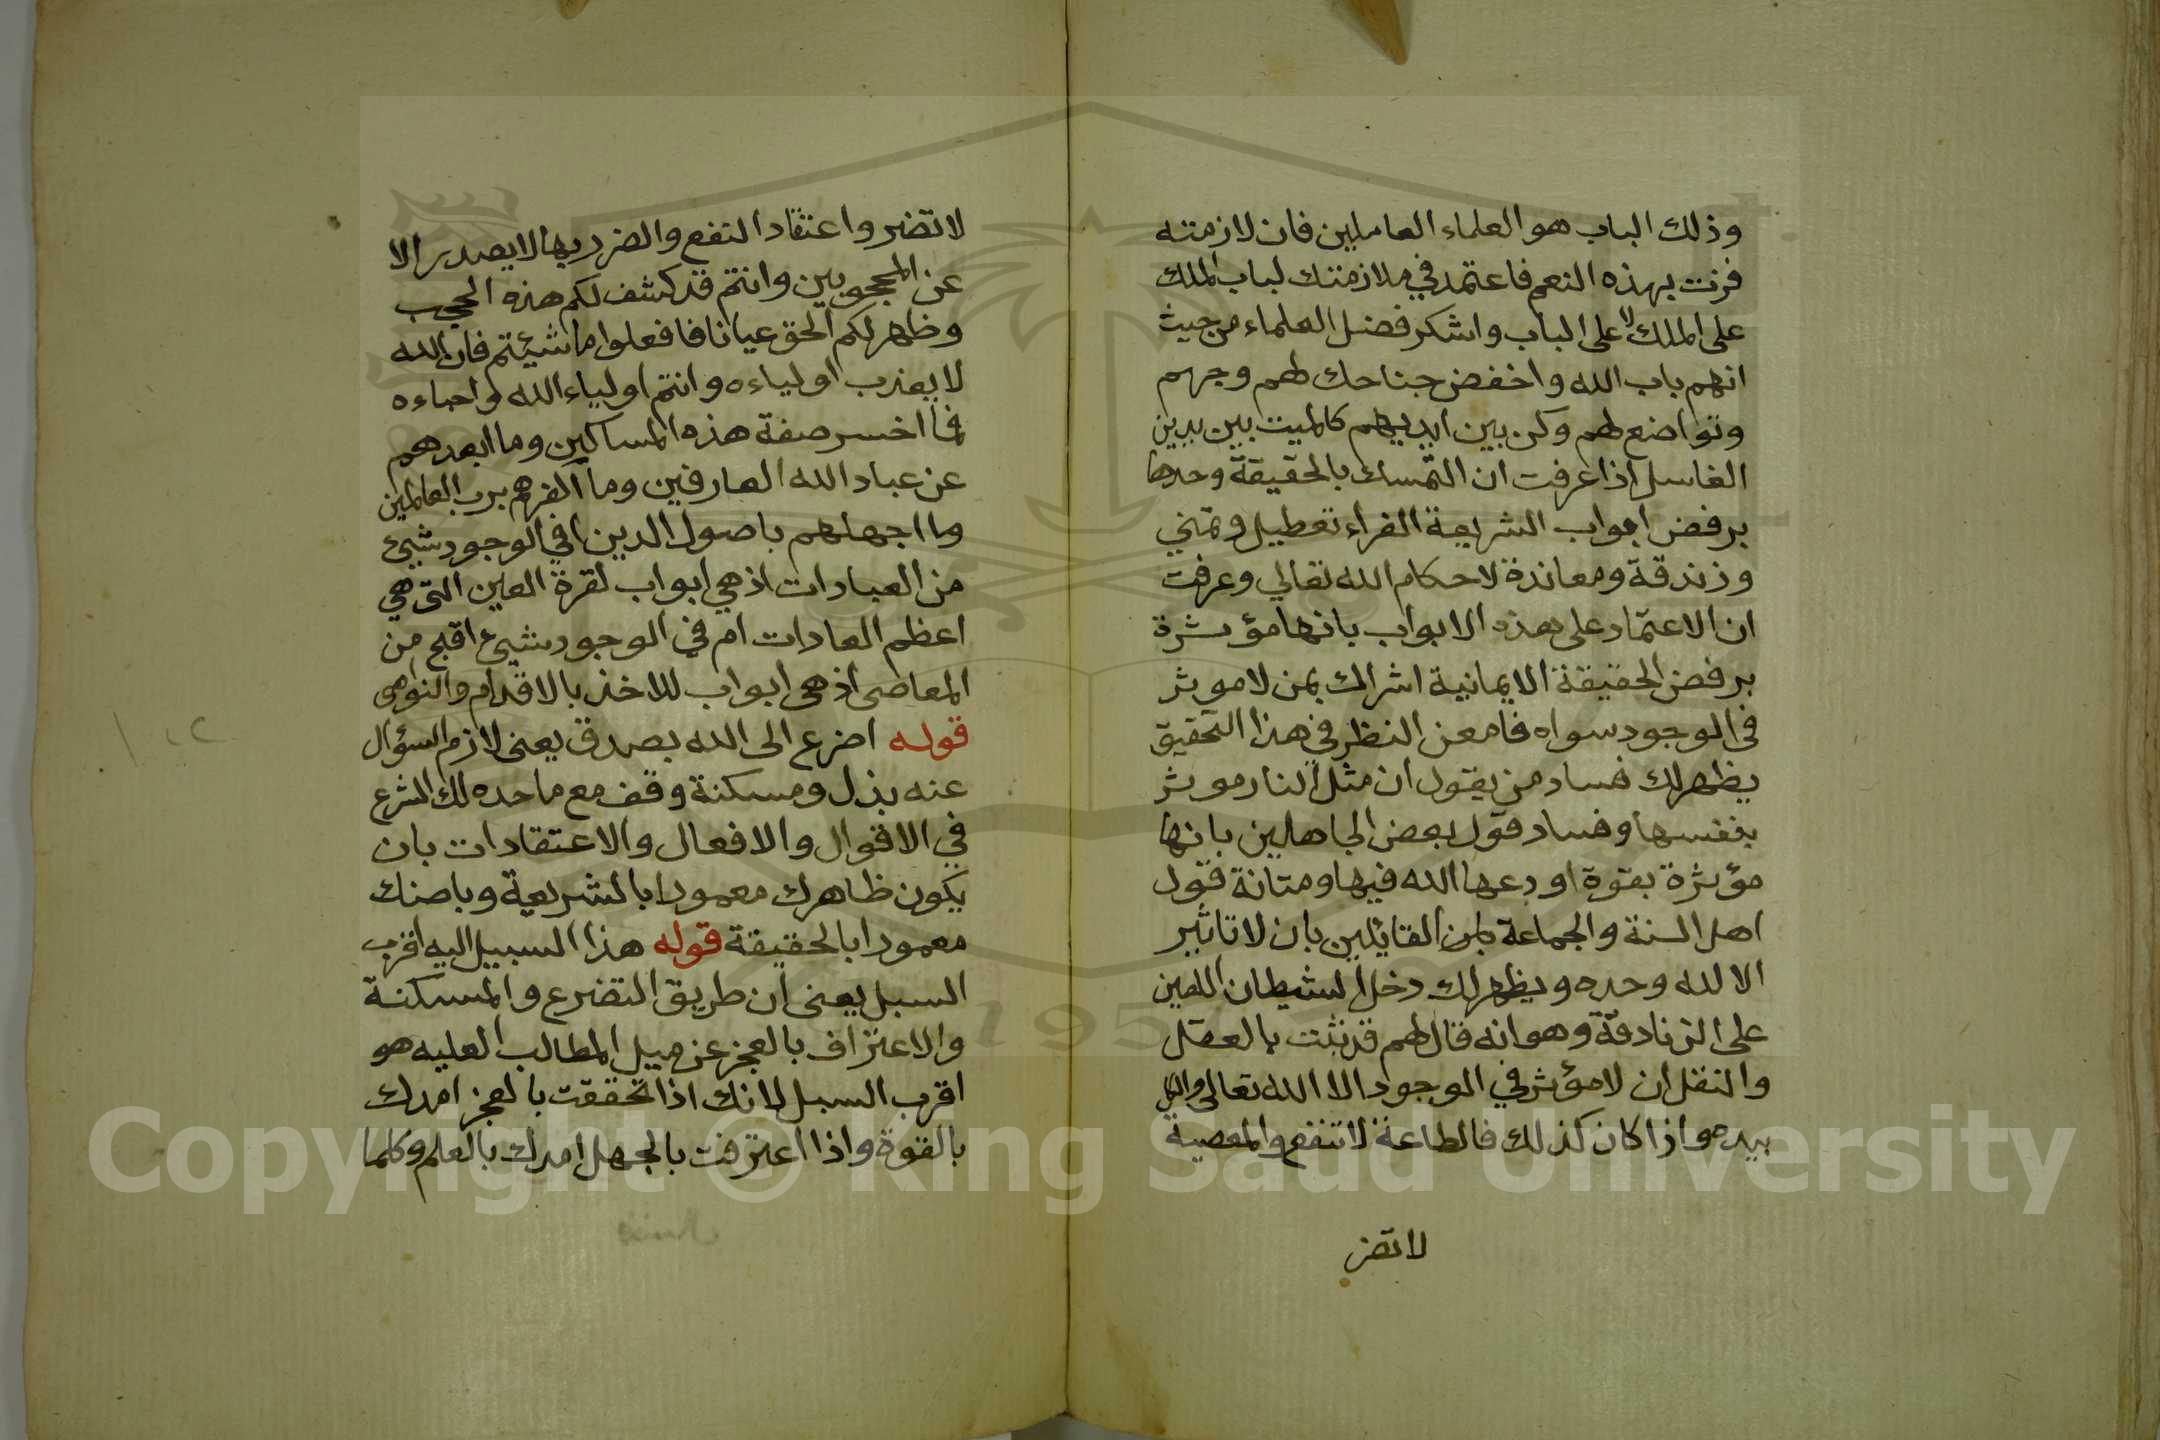 وذلك الباب هو العلماء العاملين فان لازمته
فزت بهذه النعم فاعتمد في ملازمتك لباب الملك
على الملك لا على الباب واشكر فضل العلماء من حيث
انهم باب الله واخفض جناحك لهم وجهم
وتواضع لهم وكن بين ايديهم كالميت بين يدين
الغاسل اذا عرفت ان التمسك بالحقيقة وحدها
برفض ابواب الشريعة الغراء تعطيل وتمني
وزندقة ومعاندة لاحكام الله تعالي وعرفت
ان الاعتماد على هذه الابواب بانها مؤثرة
برفض الحقيقة الايمانية اشراك بمن لا موثر
في الوجود سواه فامعن النظر في هذا التحقيق
يظهر لك فساد من يقول ان مثل النار موثر
بنفسها وفساد قول بعض الجاهلين بانها
مؤثرة بقوة اودعها الله فيها ومتانة قول
اهل السنة والجماعة القايلين بان لا تاثير
الا لله وحده ويظهر لك دخل الشيطان اللعين
على الزنادقة وهو انه قال لهم قد ثبت بالعقل
والنقل ان لا مؤثر في الوجود الا الله تعالى والكل
بيده واذا كان كذلك فالطاعة لا تنفع والمعصية
لا تضر
لا تضر واعتقاد النفع والضرر بها لا يصدر الا
عن المحجوبين وانتم قد كشف لكم هذه الحجب
وظهر لكم الحق عيانا فافعلوا ما شيئتم فان الله
لا يعذب اولياءه وانتم اولياء الله واحباءه
فما اخسر صفة هذه المساكين وما ابعدهم
عن عباد الله العارفين وما اكفرهم برب العالمين
وما اجهلهم باصول الدين افي الوجود شيئ
من العبادات اذ هي ابواب لقرة العين التي هي
اعظم العادات ام في الوجود شيئ اقبح من
المعاصى اذ هى ابواب للاخذ بالاقدام والنواصى
قوله اضرع الى الله بصدق يعنى لازم السؤال
عنه بذل ومسكنة وقف مع ما حده لك الشرع
في الاقوال والافعال والاعتقادات بان
يكون ظاهرك معمورا بالشريعة وباصنك
معمورا بالحقيقة قوله هذا السبيل اليه اقرب
السبل يعنى ان طريق التضرع والمسكنة
والاعتراف بالعجز عن ميل المطالب العليه هو
اقرب السبل لانك اذا تحققت بالعجز امدك
بالقوة واذا اعترفت بالجهل امدك بالعلم وكلما
Copyright © King Saud University